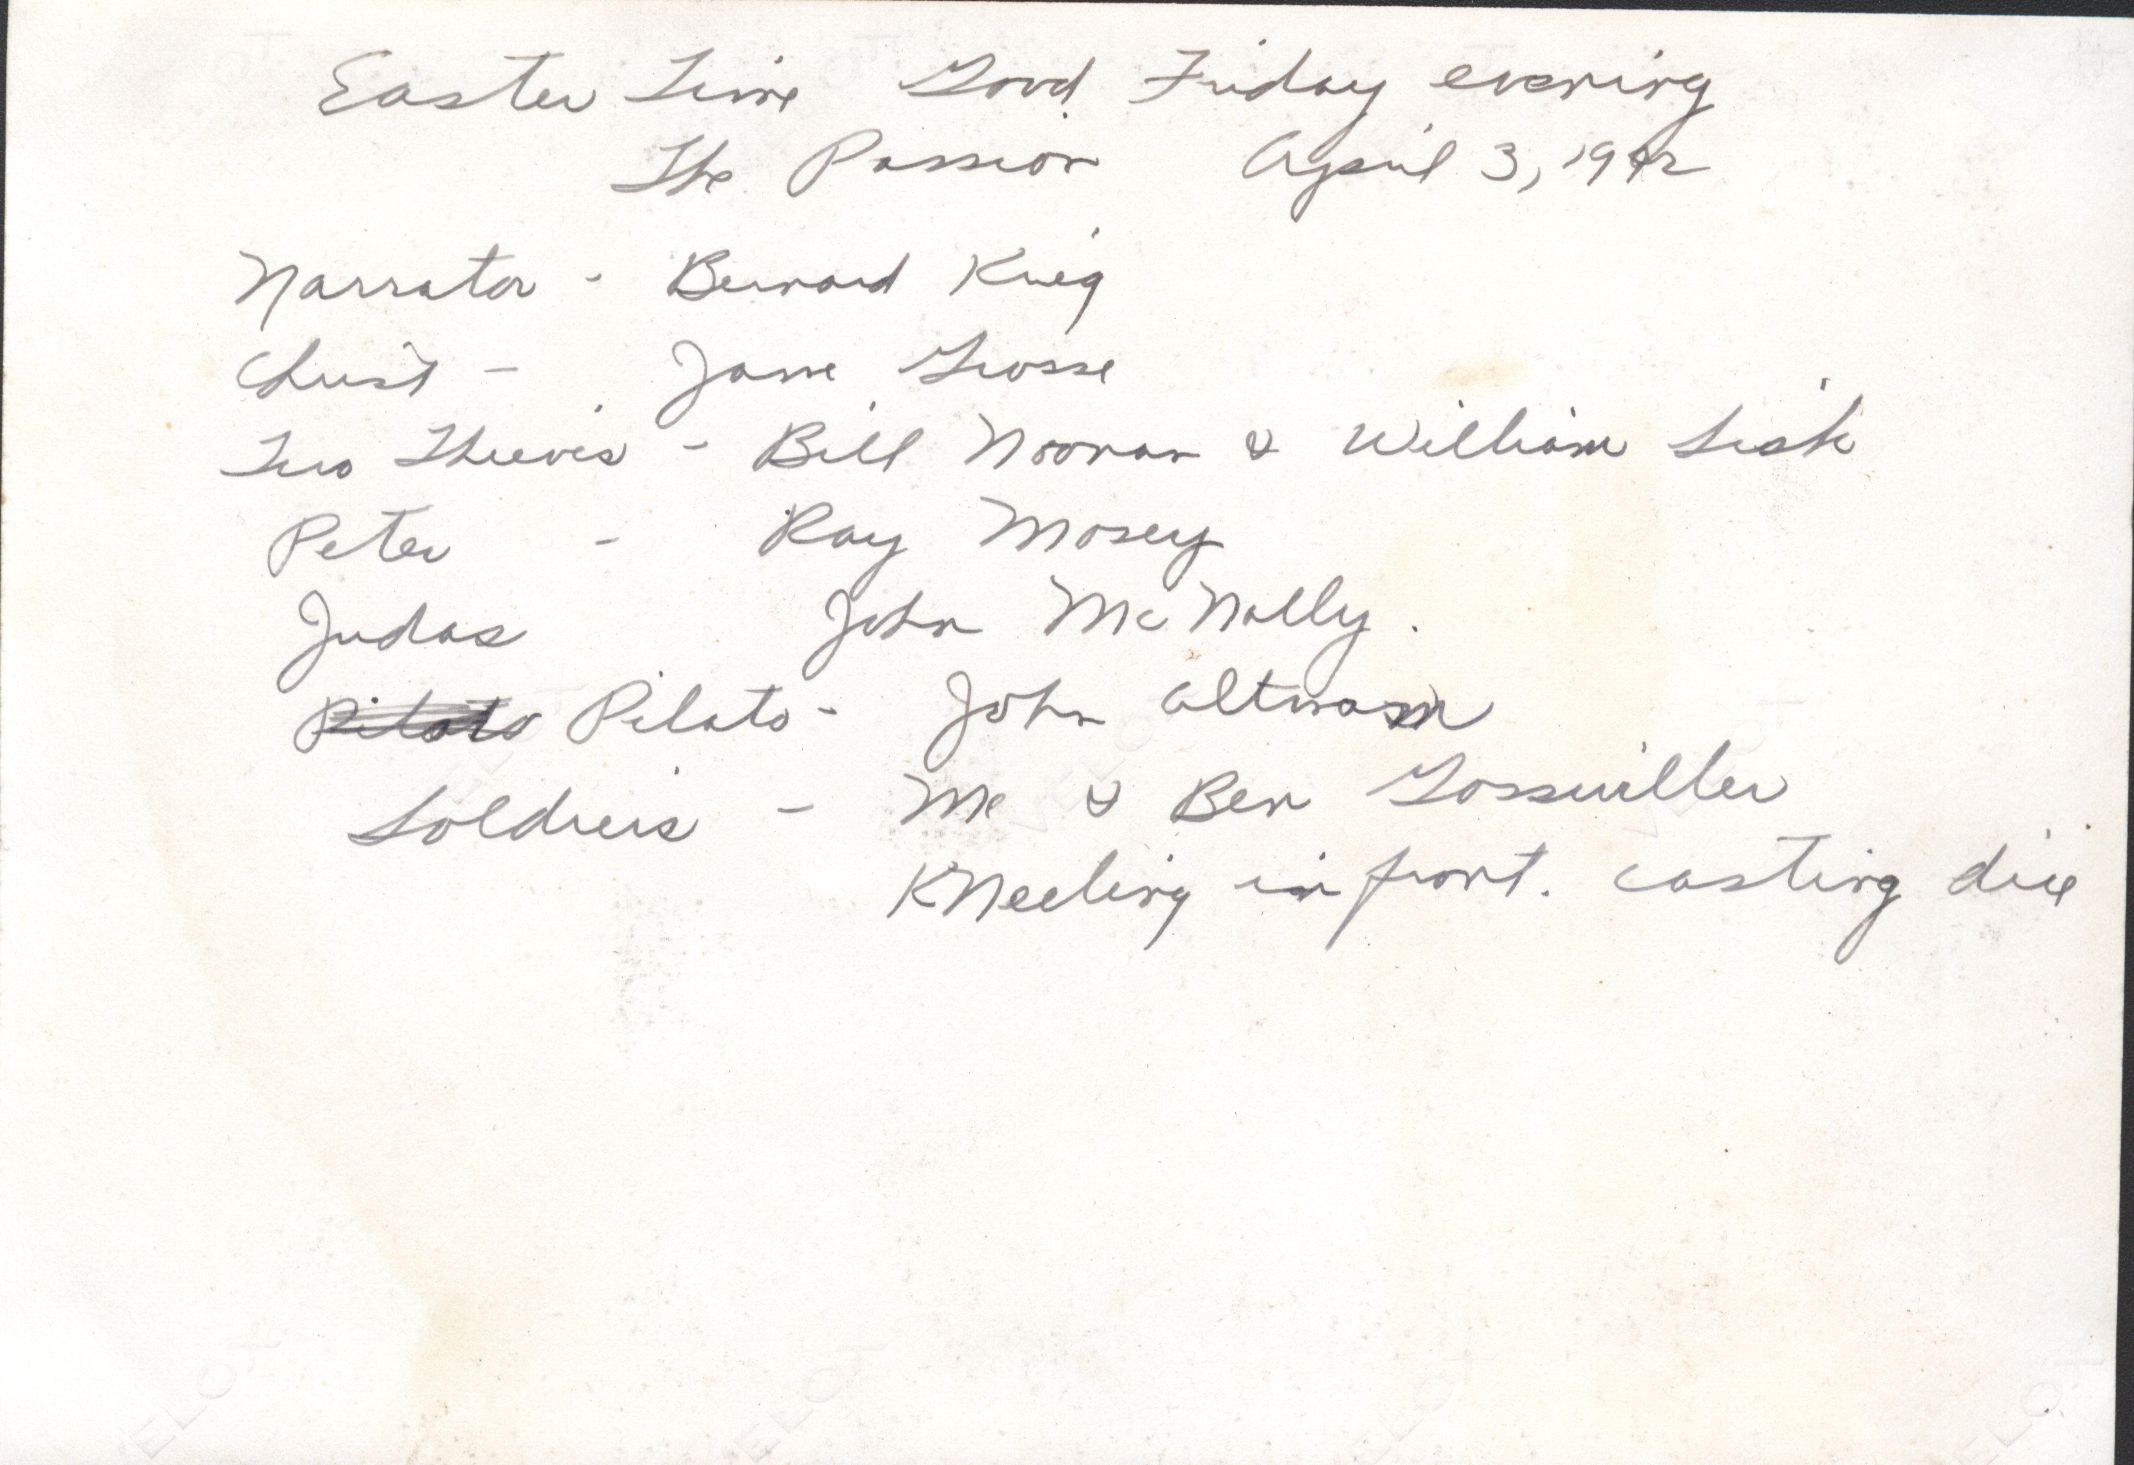 Easter Time Good Friday evening
The Passion April 3, 1942
Narrator - Bernard Krieg
Christ - Jame Grosse
Two Thieves - Bill Noonan & William Lisk
Peter - Ray Mosey
Judas John McNally.
Pilate - John Altman
Soldiers - Me & Ben Gosswiller
KNeeling in front. casting dice
VELOX